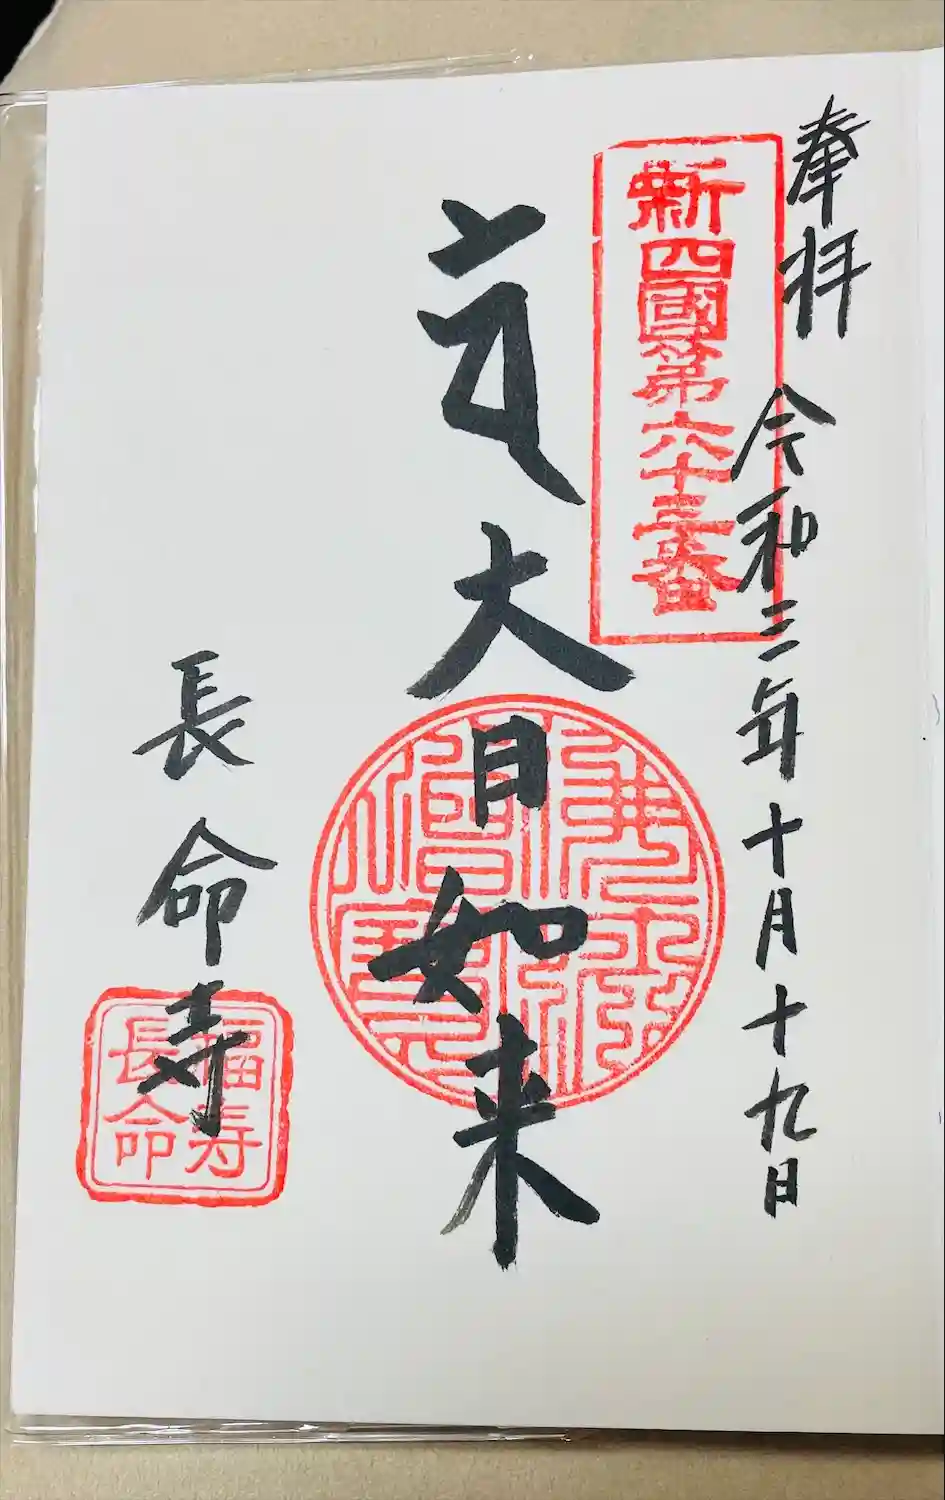 奉拝 令和三年十月十九日
新四國第六十三番
大日如来
佛法僧寶
長命寺
福寿
長命